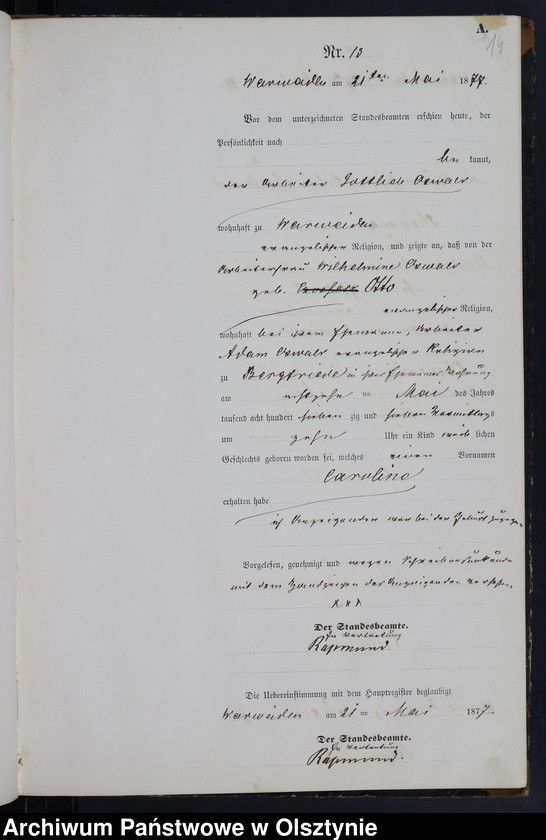 A.
14
Nr. 13
Warweiden am 21ten Mai 1877.
Vor dem unterzeichneten Standesbeamten erschien heute, der
Persönlichkeit nach
be kannt,
der Arbeiter Gottlieb Oswald
wohnhaft zu Warweiden
evangelischer Religion, und zeigte an, daß von der
Arbeiterfrau Wilhelmine Oswald
geb. Otto
evangelischer Religion,
wohnhaft bei ihrem Ehemanne, Arbeiter
Adam Oswald evangelischer Religion
zu Bergfriede in ihrer Ehemannes Wohnung
am achtzehn ten Mai des Jahres
tausend acht hundert sieben zig und sieben Vormittags
um zehn Uhr ein Kind weib lichen
Geschlechts geboren worden sei, welches einen Vornamen
Caroline
erhalten habe
ich Anzeigender war bei der Geburt zugegen
Vorgelesen, genehmigt und wegen Schreibensunkunde
mit dem Handzeichen des Anzeigenden versehen
x x x
Der Standesbeamte.
In Vertretung
Rapmund.
Die Uebereinstimmung mit dem Hauptregister beglaubigt
Warweiden am 21 ten Mai 1877.
Der Standesbeamte.
In Vertretung
Rapmund.
Archiwum Państwowe w Olsztynie